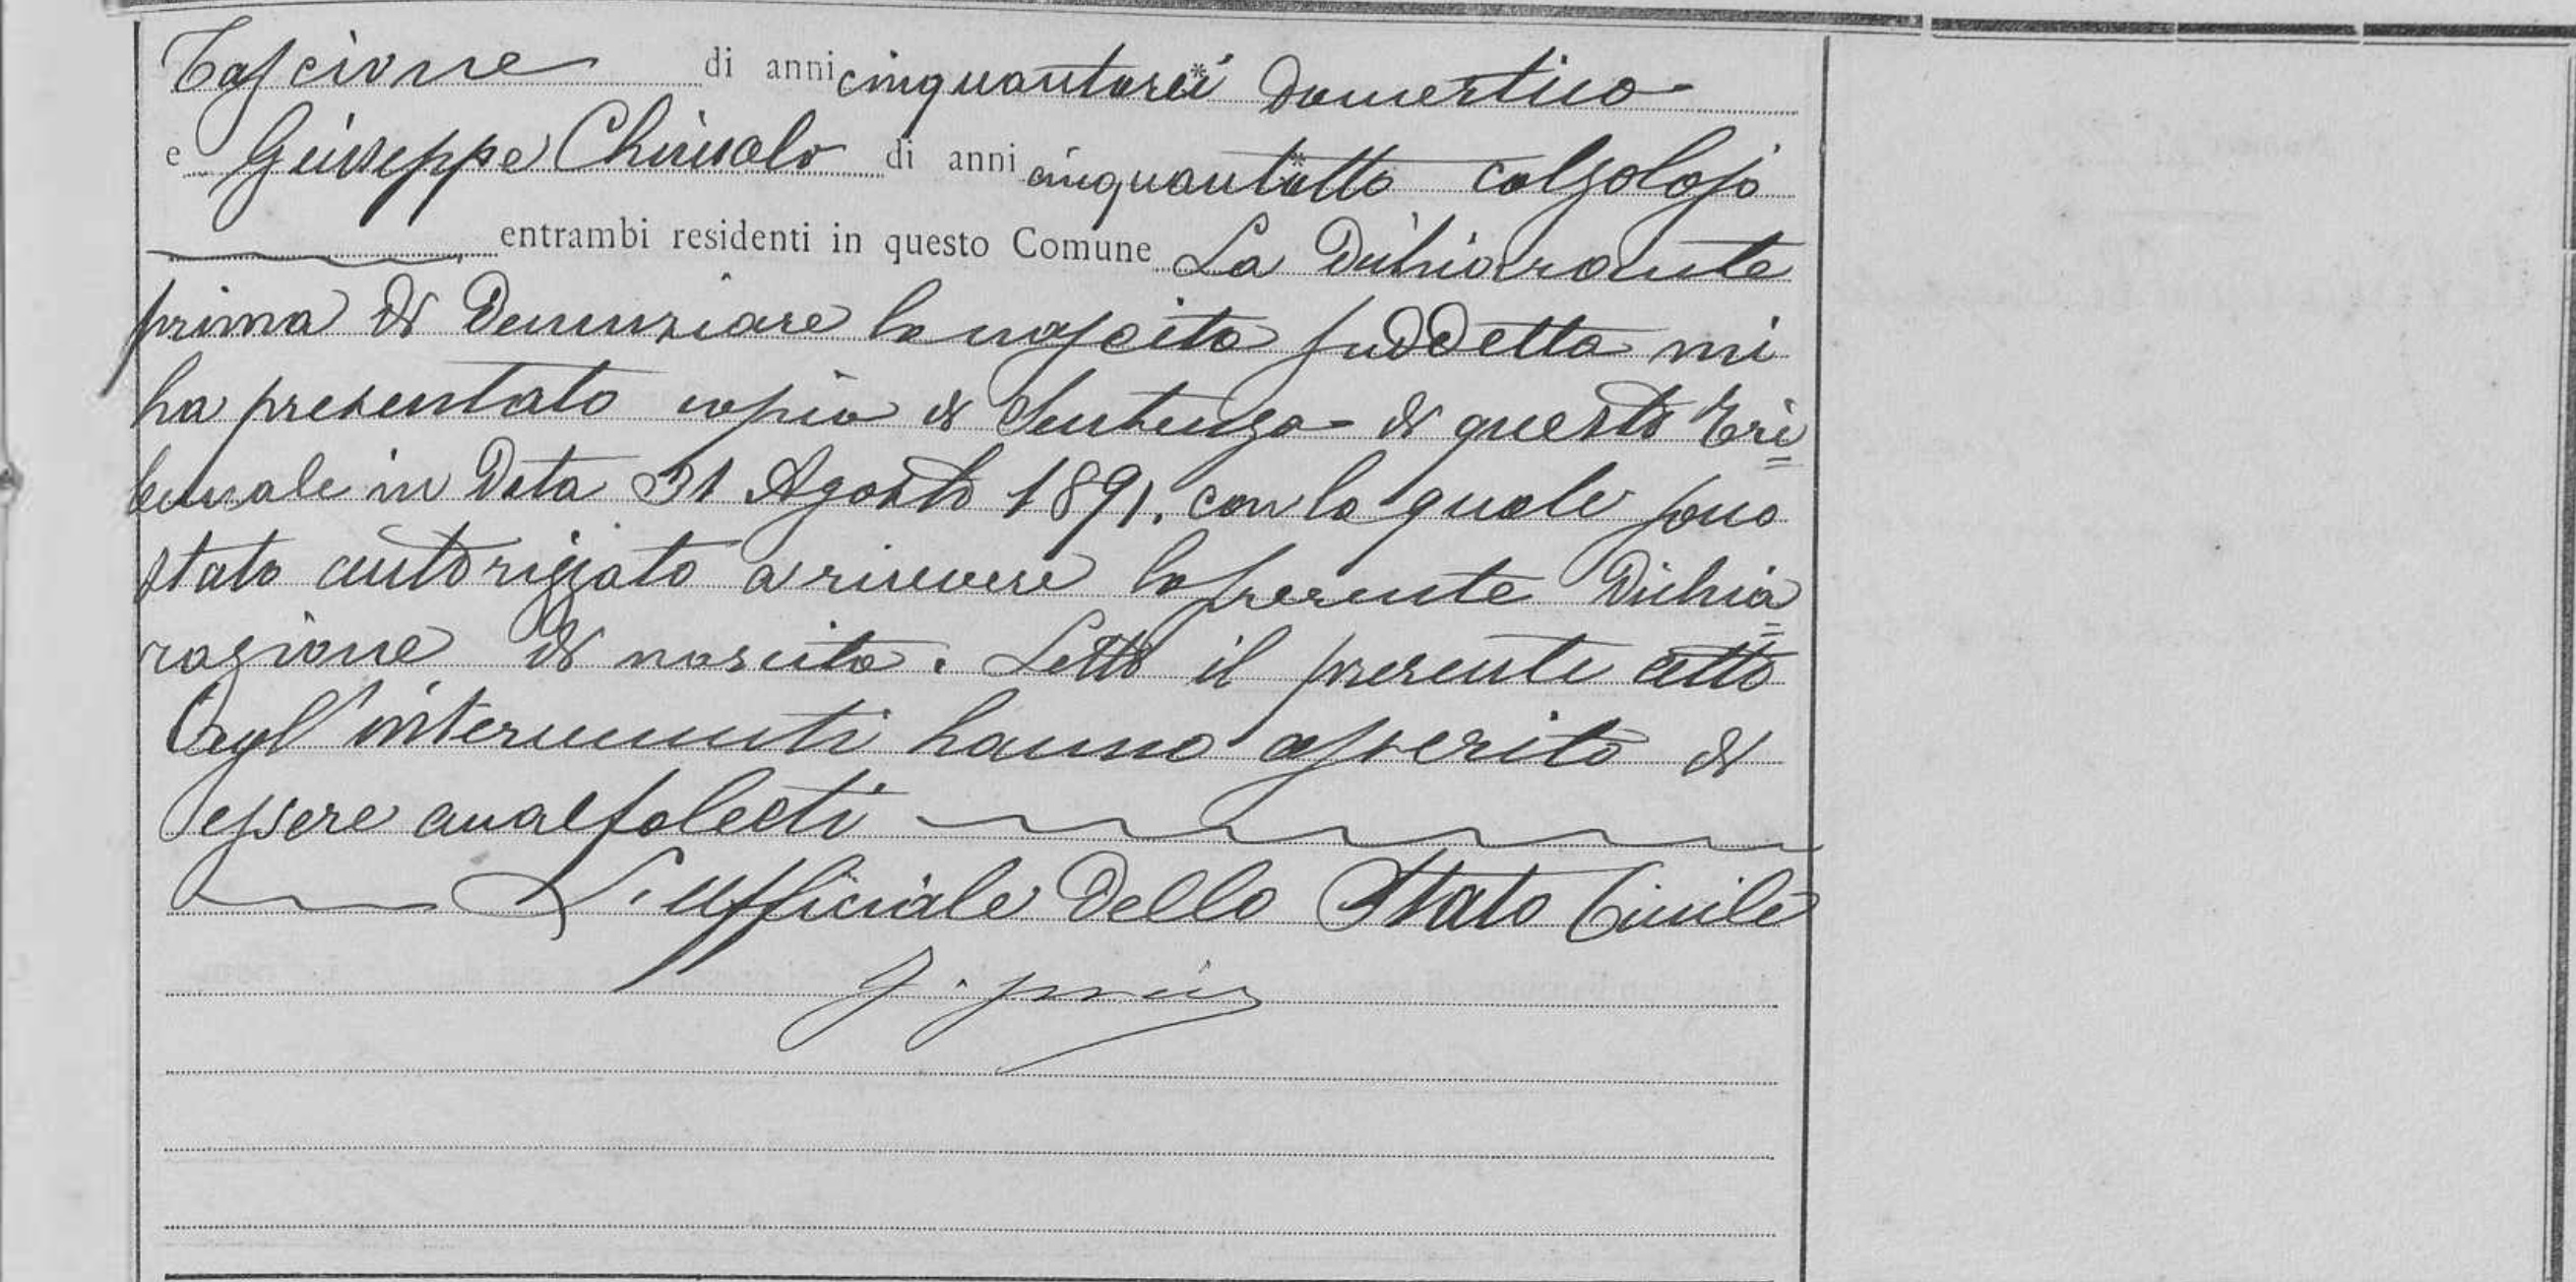 Tascione di anni cinquantasei domestico
e Giuseppe Chirialo di anni cinquantotto calzolajo
entrambi residenti in questo Comune La dichiarante
prima di denunziare la nascita suddetta mi
ha presentato copia di Sentenza di questo Tri=
bunale in data 31 Agosto 1891. con la quale sono
stato autorizzato a ricevere la presente dichia=
razione di nascita. Letto il presente atto
agl'intervenuti hanno asserito di
essere analfabeti
L'Ufficiale dello Stato Civile